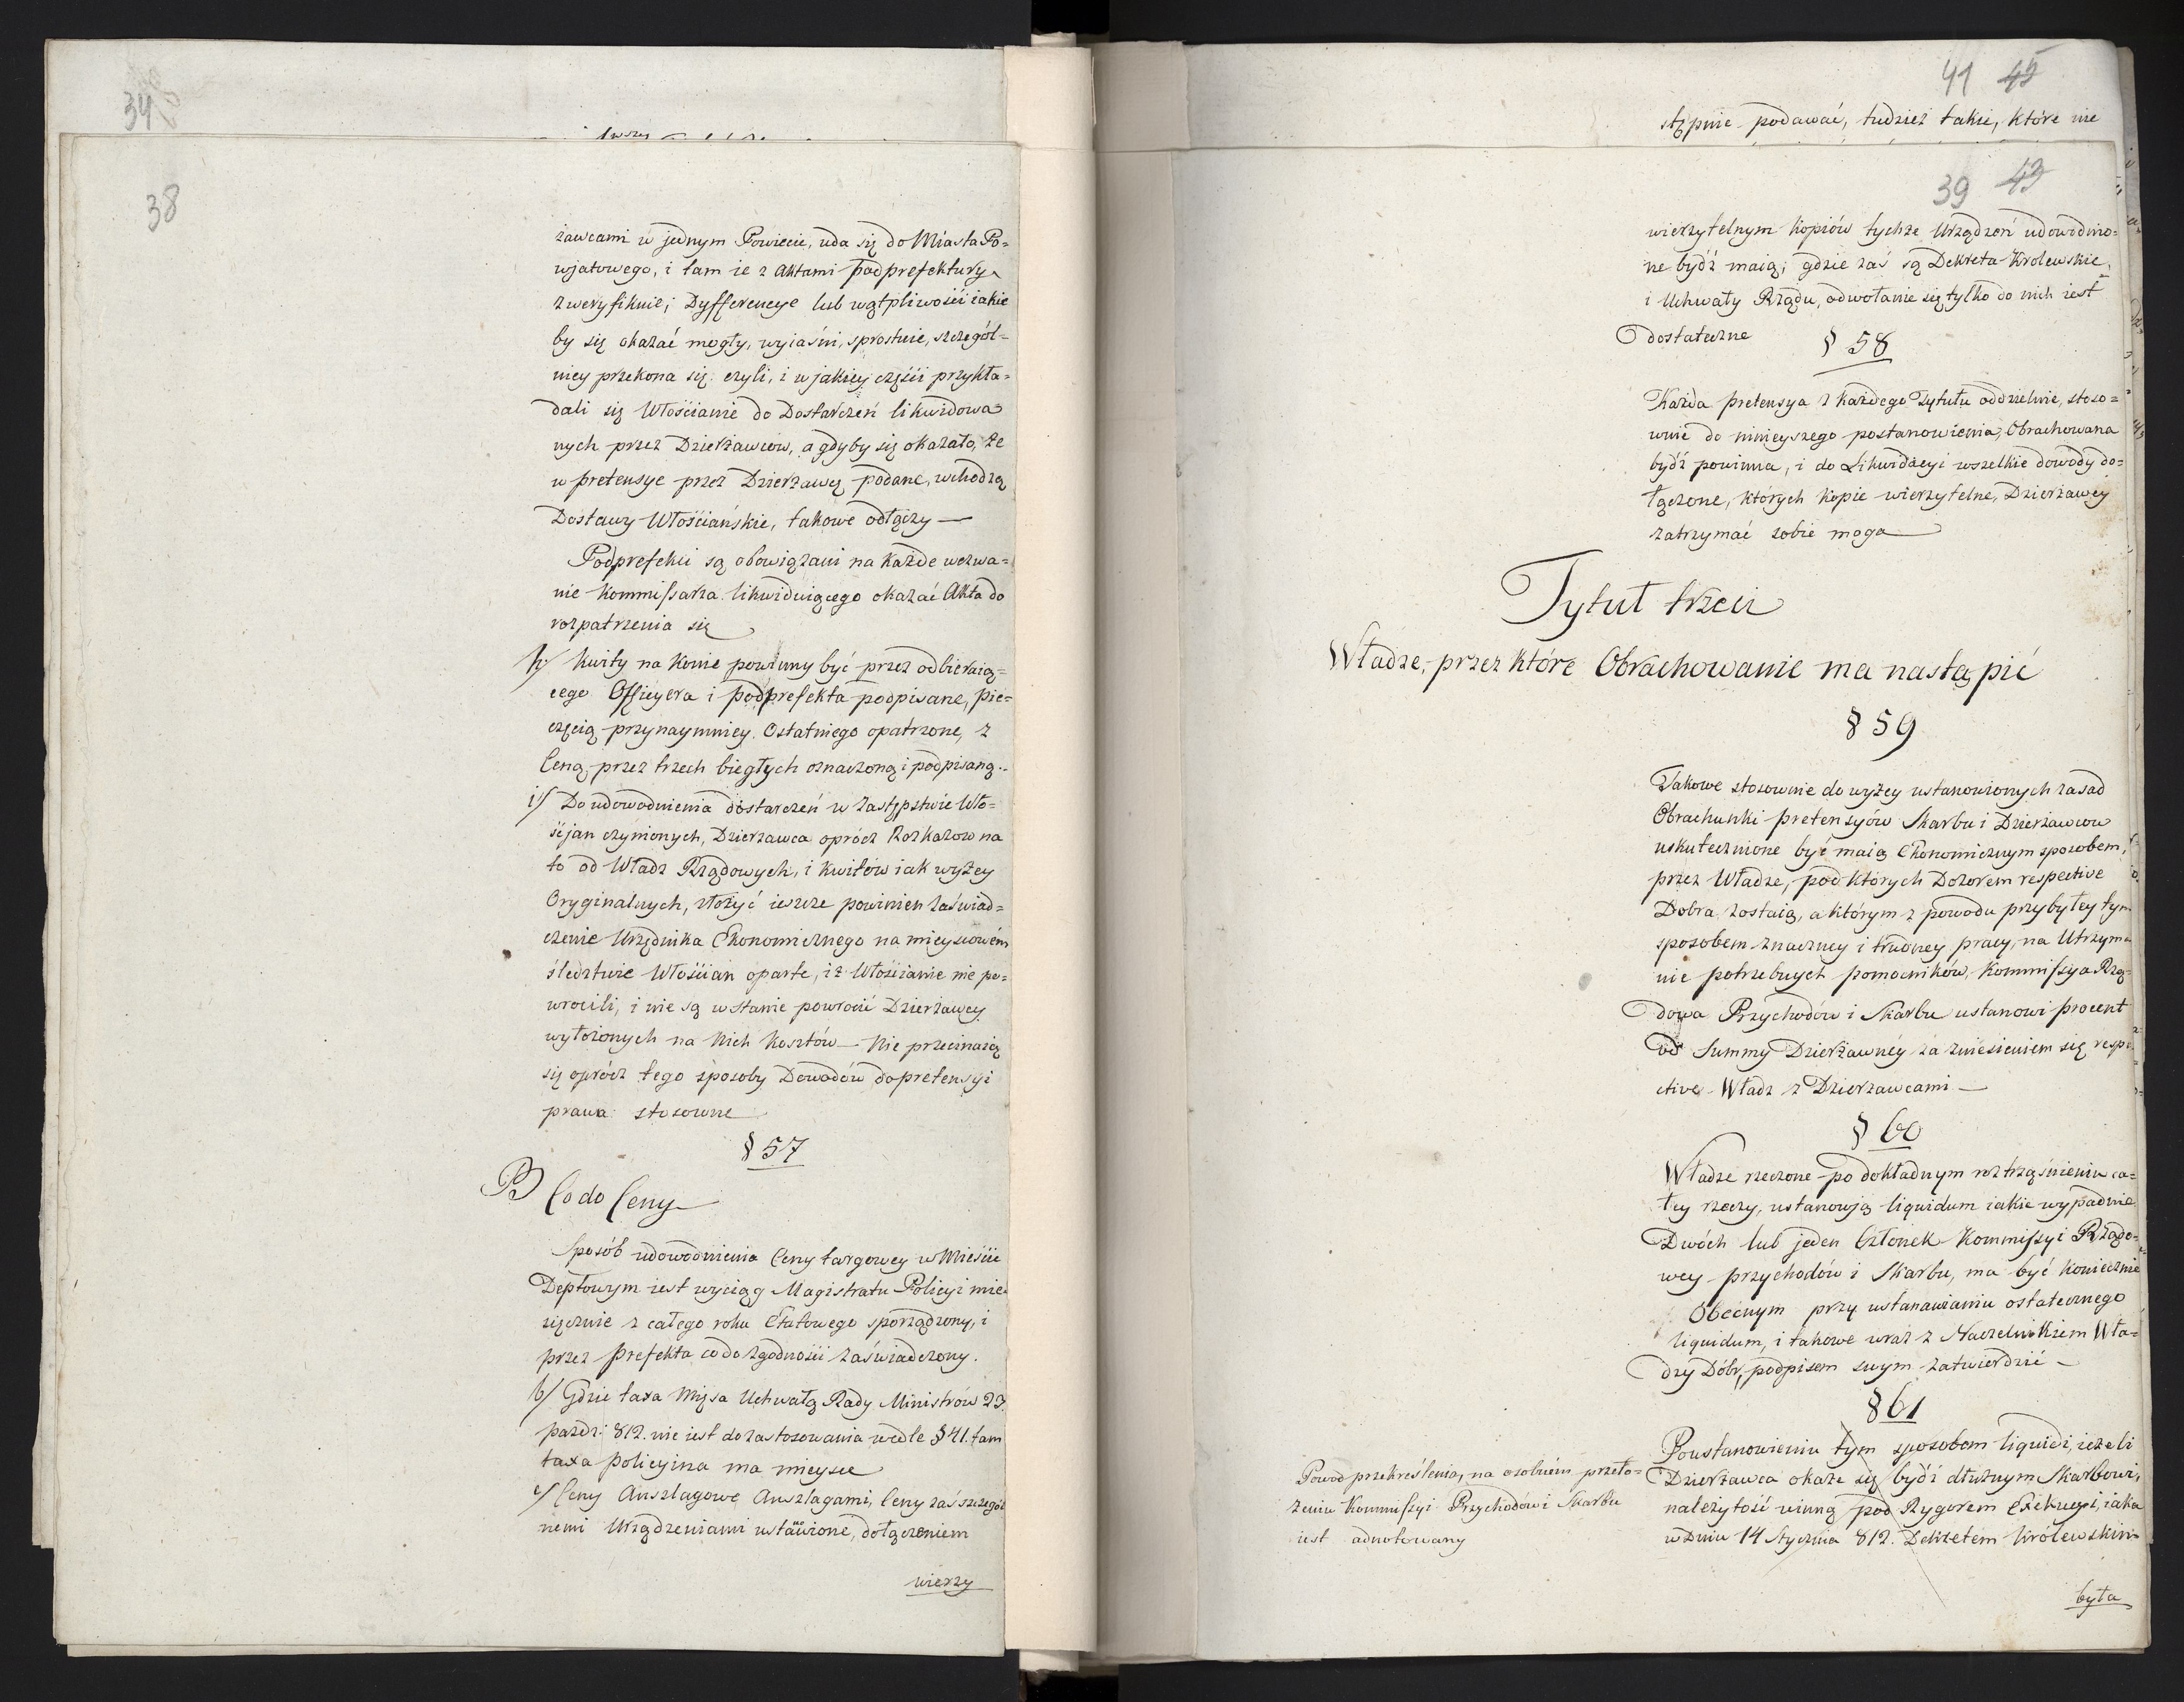 34
38
żawcami w jednym Powiecie, uda się do Miasta Po=
wjatowego, i tam ie z Aktami podprefektury
zweryfikuie; Dyfferencye lub wątpliwości iakie
by się okazać mogły, wyiaśni, sprostuie, szczegól=
niey przekona się: czyli, i w jakiey części przykła=
dali się Włościanie do Dostarczeń likwidowa=
nych przez Dzierżawców, a gdyby się okazało, że
w pretensye przez Dzierżawcę podane, wchodzą
Dostawy Włościańskie, takowe odłączy —
Podprefekci są obowiązani na każde wezwa=
nie Kommissarza likwiduiącego okazać Akta do
rozpatrzenia się
h/ Kwity na Konie powinny być przez odbieraią=
cego Officyera i podprefekta podpisane, pie=
częcią przynaymniey Ostatniego opatrzone, z
Ceną przez trzech biegłych oznaczoną i podpisaną.
i/ Do udowodnienia dostarczeń w zastępstwie Wło=
ścjan czynionych, Dzierżawca oprócz Rozkazow na
to od Władz Rządowych, i kwitów iak wyżey
Oryginalnych, złożyć ieszcze powinien zaświad=
czenie Urzędnika Ekonomicznego na mieyscowém
śledztwie Włościan oparte, iż Włościanie nie po=
wrocili, i nie są w stanie powrócić Dzierżawcy
wyłożonych na Nich Kosztów — Nie przecinaią
się oprócz tego sposoby Dowodów do pretensyi
prawa stosowne
§ 57
B Co do Ceny
Sposób udowodnienia Ceny targowey w Mieście
Deptowym iest wyciąg Magistratu Policyi mie=
sięcznie z całego roku Etatowego sporządzony, i
przez Prefekta co do zgodności zaświadczony.
b/ Gdzie taxa Mięsa Uchwałą Rady Ministrów 23.
paźdz: 812. nie iest do zastosowania wedle § 41. tam
taxa policyina ma mieysce
c/ Ceny Anszlagowe Anszlagami, Ceny zaś szczegól
nemi Urządzeniami ustawione, dołączeniem
wierzy
41 42
stępnie podawać, tudzież takie, które nie
39 43
wierzytelnym kopiów tychże Urządzeń udowodnio=
ne bydź maią; gdzie zaś są Dekreta Krolewskie,
i Uchwały Rządu, odwołanie się tylko do nich iest
dostateczne
§ 58
Każda pretensya z każdego Tytułu oddzielnie, stoso=
wnie do ninieyszego postanowienia, Obrachowana
bydź powinna, i do Likwidacyi wszelkie dowody do=
łączone, których kopie wierzytelne, Dzierżawcy
zatrzymać sobie moga
Tytuł trzeci
Władze, przez które Obrachowanie ma nastąpić
§ 59
Takowe stosownie do wyżey ustanowionych zasad
Obrachunki pretensyów Skarbu i Dzierżawcow
uskutecznione być maią Ekonomicznym sposobem,
przez Władze, pod których Dozorem respective
Dobra zostaią, a którym z powodu przybyłey tym
sposobem znaczney i trudney pracy, na Utrzyma
nie potrzebnych pomocników, Kommissya Rzą=
dowa Przychodów i Skarbu ustanowi procent
od Summy Dzierżawnéy za zniesieniem się respe
ctive Władz z Dzierżawcami —
§ 60
Władze rzeczone po dokładnym roztrząśnieniu ca=
łey rzeczy, ustanowią liquidum iakie wypadnie.
Dwóch lub jeden Członek Kommissyi Rządo=
wey przychodów i Skarbu, ma być koniecznie
Obecnym przy ustanawianiu ostatecznego
liquidum, i takowe wraz z Naczelnikiem Wła=
dzy Dóbr, podpisem swym zatwierdzić —
§ 61
Po ustanowieniu tym sposobem liquidi, ieżeli
Dzierżawca okaże się bydź dłużnym Skarbowi,
należytość winną pod Rygorem Exekucyi, iaka
w Dniu 14 Stycznia 812. Dekretem Królewskim
była
Powod przekreślenia, na osobném przeło=
żeniu Kommissyi Przychodów i Skarbu
iest adnotowany